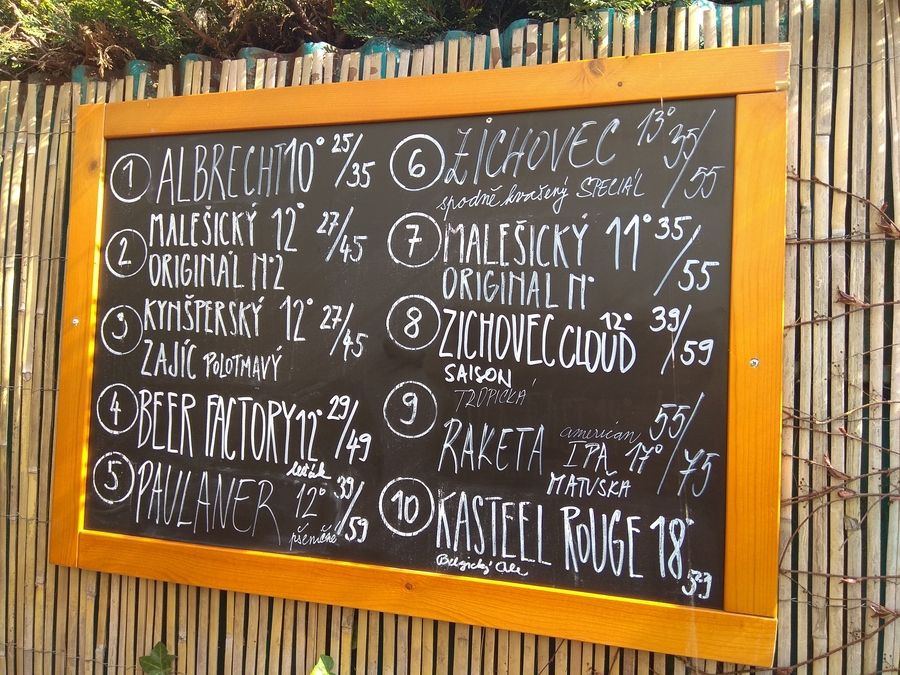 1 ALBRECHT 10° 25/35
2 MALEŠICKÝ 12° 27/45
ORIGINÁL N°2
3 KYNŠPERSKÝ 12° 27/45
ZAJÍC POLOTMAVÝ
4 BEER FACTORY 12° 29/49
ležák
5 PAULANER 12° 39/59
pšeničné
6 ZICHOVEC 13° 35/55
spodně kvašený SPECIÁL
7 MALEŠICKÝ 11° 35/55
ORIGINÁL N°
8 ZICHOVEC CLOUD 12° 39/59
SAISON
9 TROPICKÁ
RAKETA american 55/75
IPA 17°
MATUŠKA
10 KASTEEL ROUGE 18° 59
Belgický Ale